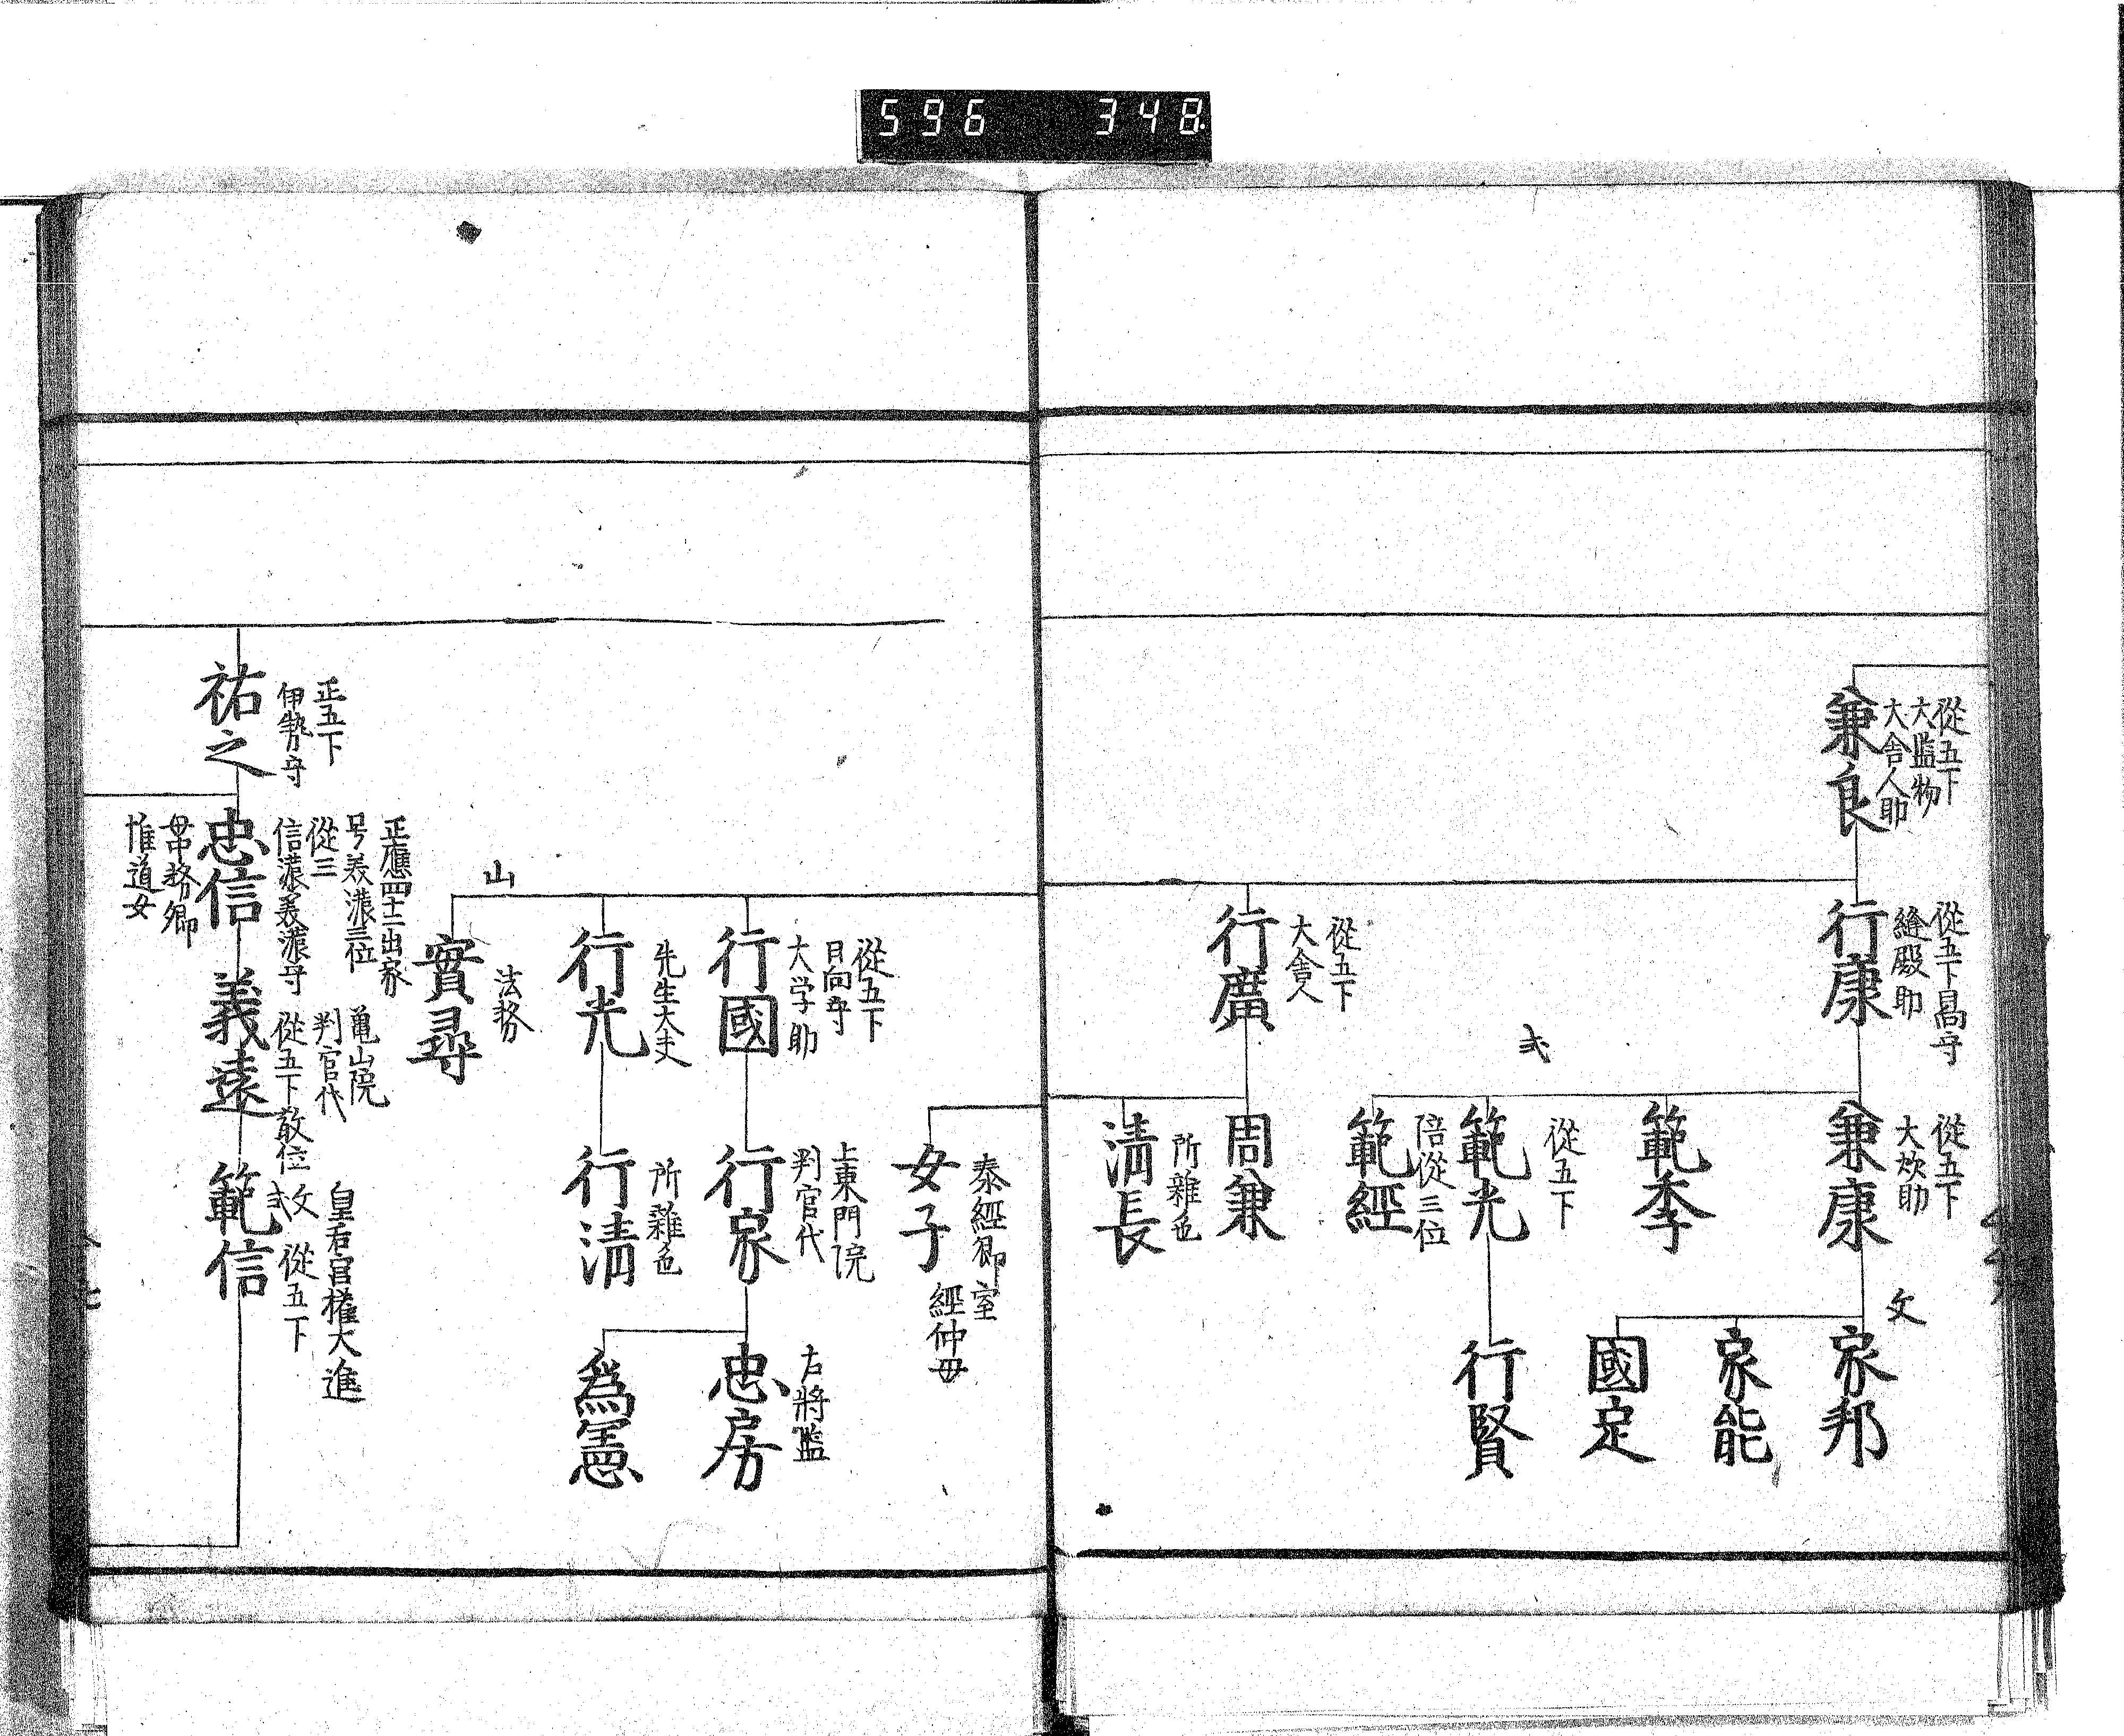 596 348
從五下
大監物
大舎人助
兼良
從五下昌守
縫殿助
行康
從五下
大舎人
行廣
弐
從五下
大炊助
兼康
範季
從五下
範光
陪從三位
範經
周兼
所雜色
淸長
文
家邦
家能
國定
行賢
泰經卿室
經仲母
女子
山
從五下
日向守
大学助
行國
先生大夫
行光
法務
實尋
上東門院
判官代
行家
所雜色
行淸
右將監
忠房
爲憲
正五下
伊勢守
祐之
正應四十二出家
号美濃三位
從三
信濃美濃守
忠信
母中務卿
惟道女
亀山院
判官代
從五下散位
義遠
弐文
皇后宮權大進
從五下
範信